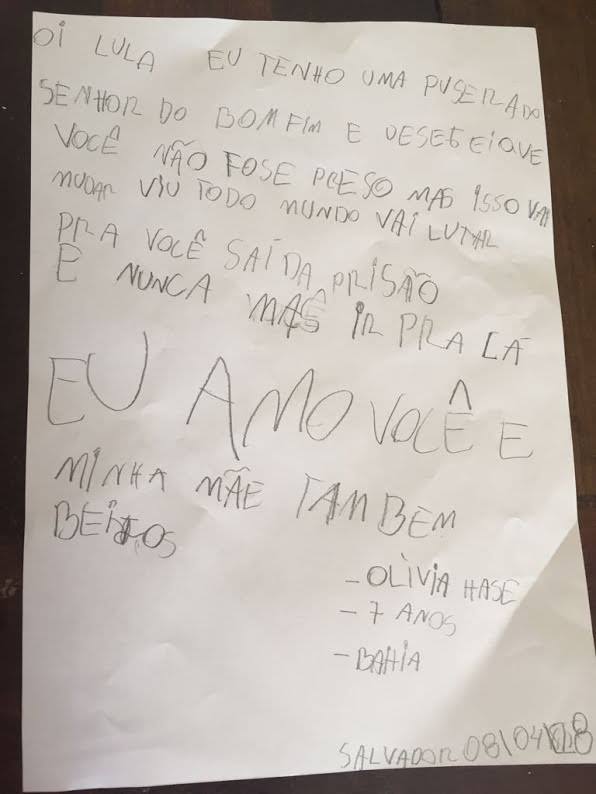 OI LULA EU TENHO UMA PUSEIRA DO
SENHOR DO BOMFIM E DESEGEI QUE
VOCÊ NÃO FOSE PRESO MAS ISSO VAI
MUDAR VIU TODO MUNDO VAI LUTAR
PRA VOCÊ SAI DA PRISÃO
E NUNCA MAS IR PRA LÁ
EU AMO VOCÊ E
MINHA MÃE TAMBEM
BEIJOS
- OLÍVIA HASE
- 7 ANOS
- BAHIA
SALVADOR 08\04\18